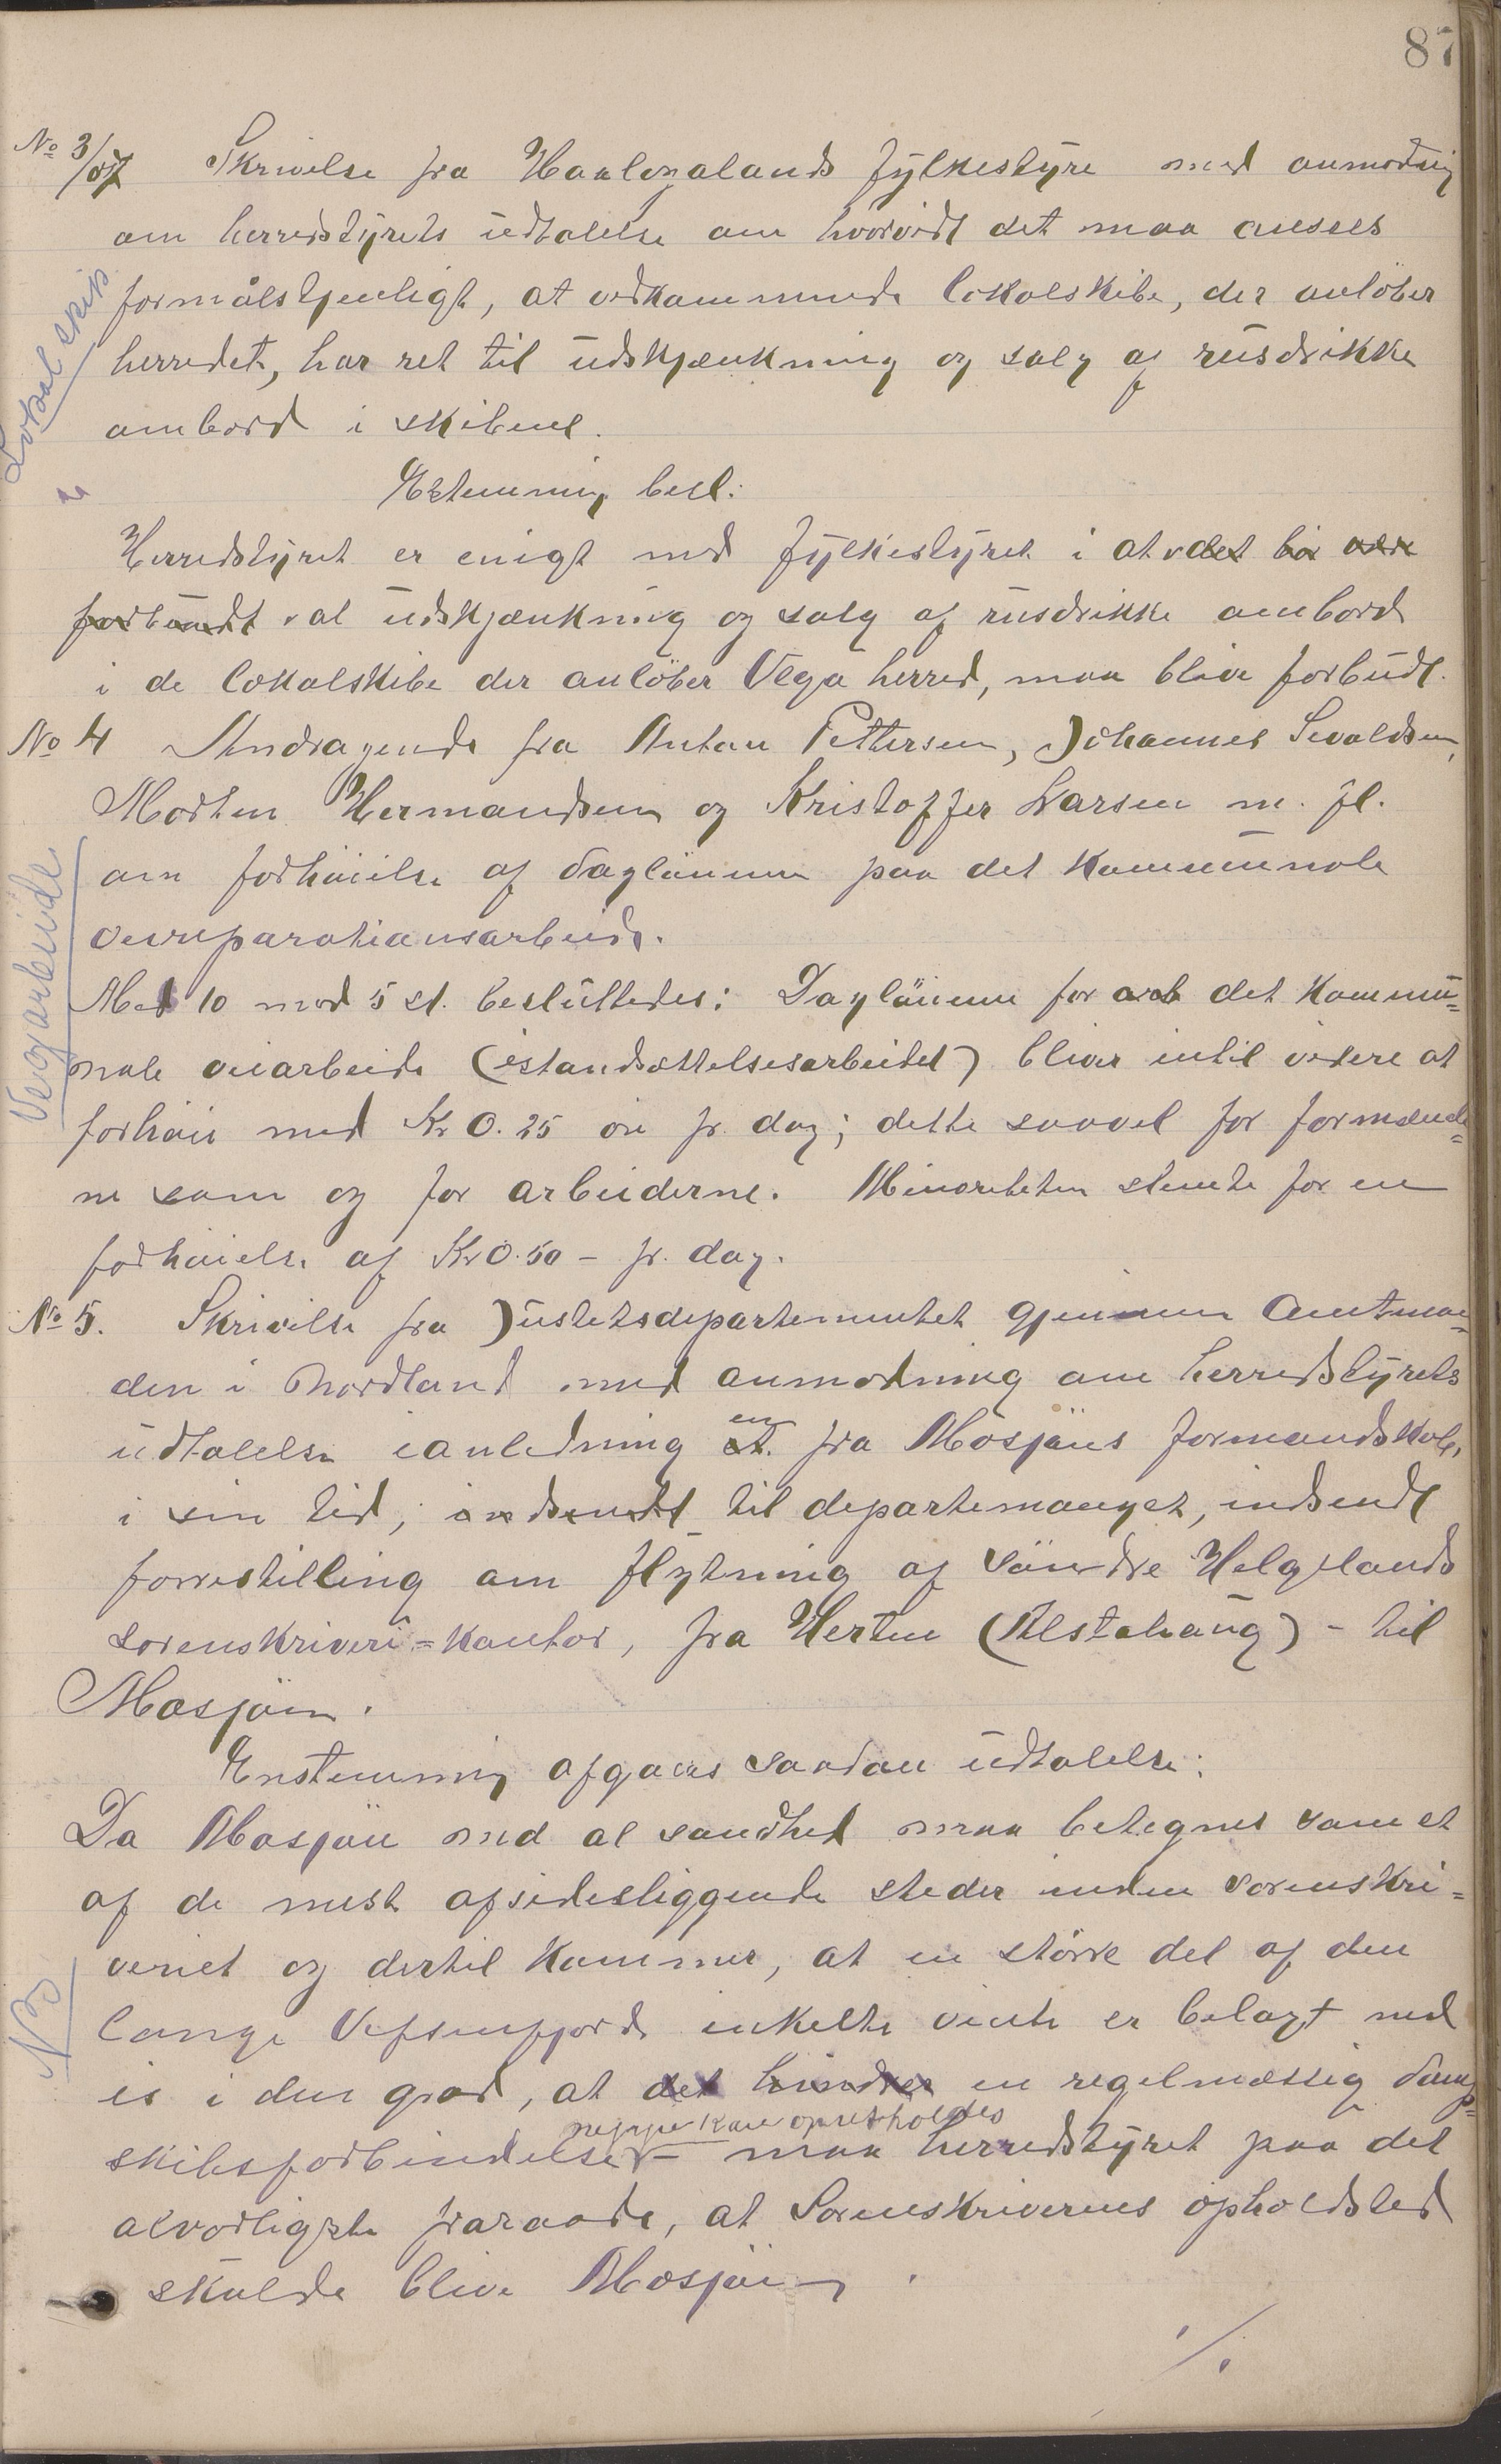 87
No 3/07 Skrivelse fra Haalogalands fylkestyre med anmodnig
om herredstyrets udtalelse om hvorvidt det maa ansees
formålstjenligt, at vedkommende lokalskibe, der anløber
Lokalskib
herredet, har ret til udskjænkning og salg af rusdrikke
ombord i skibene.
Estemmig besl:
Herredstyret er enigt med fylkestyret i at det bør være
forbundt al udskjænkning og salg af rusdrikke ombord
i de lokalskibe der anløber Vega herred, maa blive forbudt.
No 4 Andragende fra Antau Pettersen, Johannes Sevaldsen,
Morten Hermandsen og Kristoffer Larsen m. fl.
om forhøielse af daglønnen paa det kommunale
veireparationsarbeide.
Vegarbeide
Med 10 mod 5 st. besluttedes: Daglønnen for arb det kommu=
nale veiarbeide (istandsættelsesarbeidet) bliver intil videre at
forhøie med Kr 0.25 øre pr. dag; dette saavel for formænde=
ne som og for arbeiderne. Minoriteten stemte for en
forhøielse af Kr 0.50 - pr. dag.
No 5. Skrivelse fra Justetsdepartementet gjennem Amtman=
den i Nordland med anmodning om herredstyrets
udtalelse ianledning et en fra Mosjøns formandskab,
i sin tid, indsendt til departemanget, indsendt
forrestilling om flytning af Søndre Helgelands
sorenskriveri=kontor, fra Herten (Alstahaug) - til
Mosjøen.
Enstemmig afgaves saadan udtalelse:
Da Mosjøn med al sandhed maa betegnes som et
af de mest afsidesliggende steder inden sorenskri=
veriet og dertil kommer, at en større del af den
NB
lange Vefsenfjord enkelte vinte er belagt med
is i den grad, at det hindrer en regelmæssig damp=
neppe kan opretholdes
skibsforbindelse - maa herredstyret paa det
alvorligste fraraade, at Sorenskriverens opholdsted
skulde blive Mosjøen.
./.